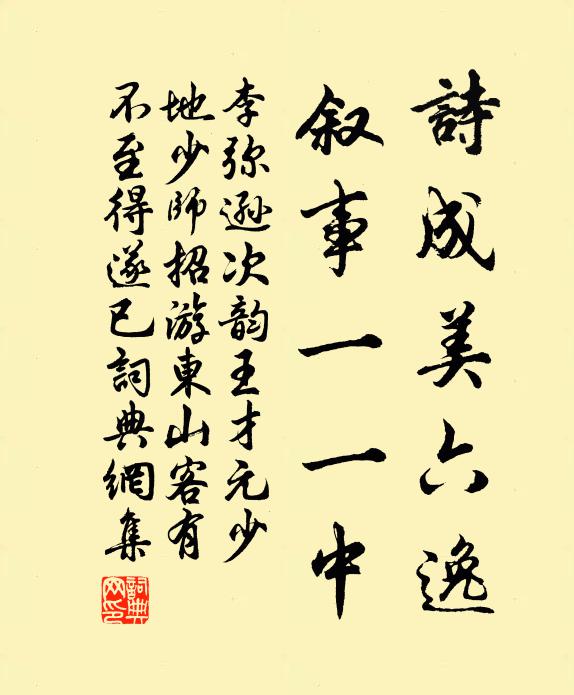 詩成美六逸
叙事一一中
李弥遜次韵王才元少
地少师招游東山客有
不至得遂已詞典網集